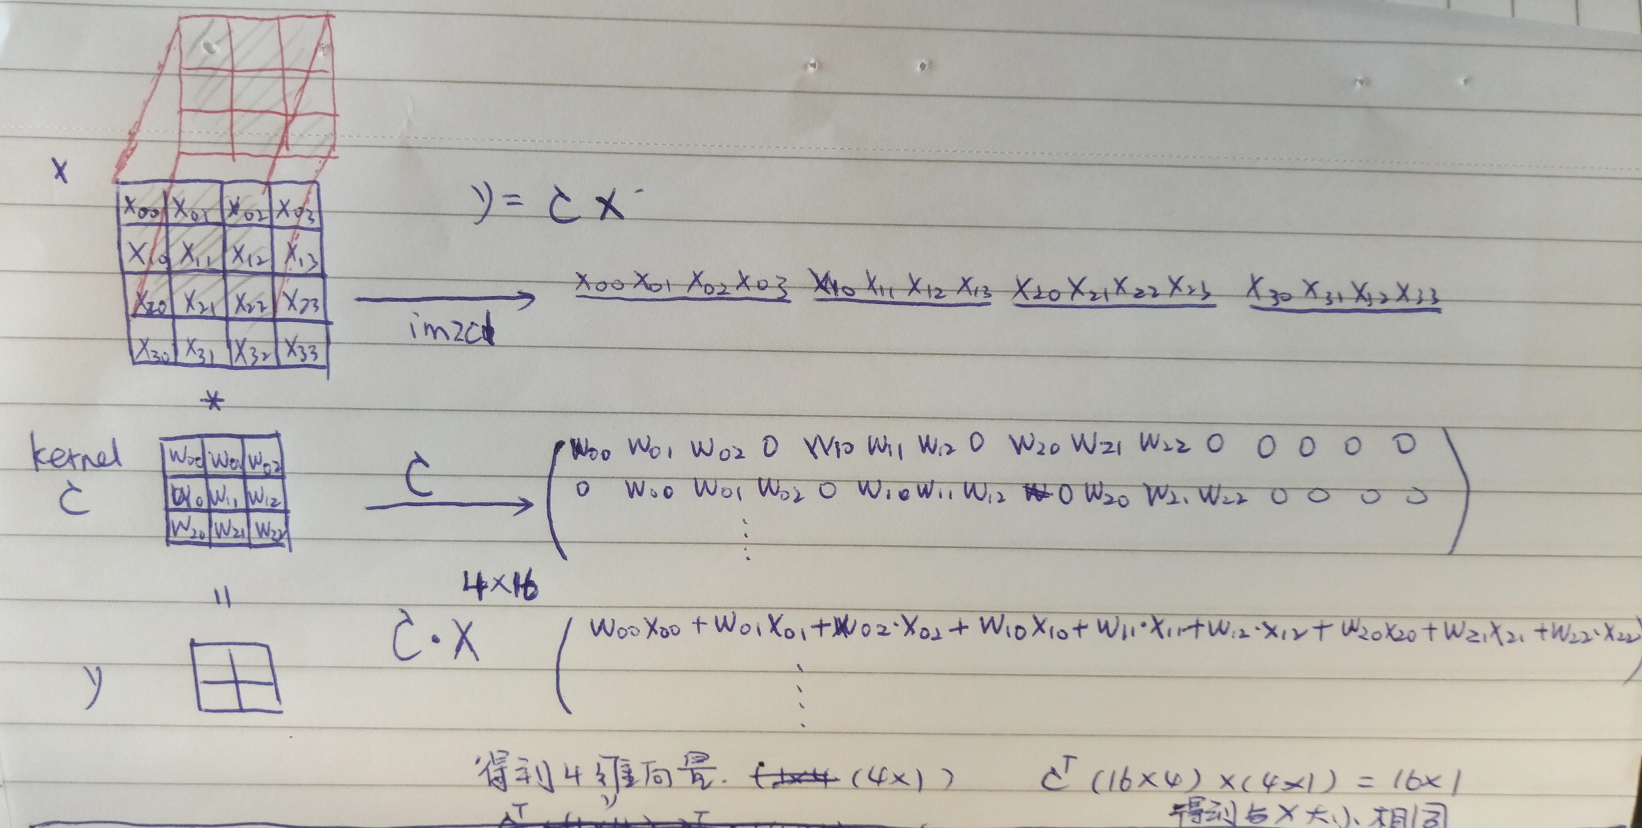 X
y = C X
X00 X01 X02 X03
X10 X11 X12 X13
X20 X21 X22 X23
X30 X31 X32 X33
im2col
X00 X01 X02 X03 X10 X11 X12 X13 X20 X21 X22 X23 X30 X31 X32 X33
*
kernel
C
W00 W01 W02
W10 W11 W12
W20 W21 W22
C
W00 W01 W02 0 W10 W11 W12 0 W20 W21 W22 0 0 0 0 0
0 W00 W01 W02 0 W10 W11 W12 0 W20 W21 W22 0 0 0 0
⋮
4×16
=
y
C·X
W00X00 + W01X01 + W02·X02 + W10X10 + W11·X11 + W12·X12 + W20X20 + W21X21 + W22·X22
⋮
得到4维向量. (4×1)
C^T (16×4) × (4×1) = 16×1
得到与X大小相同